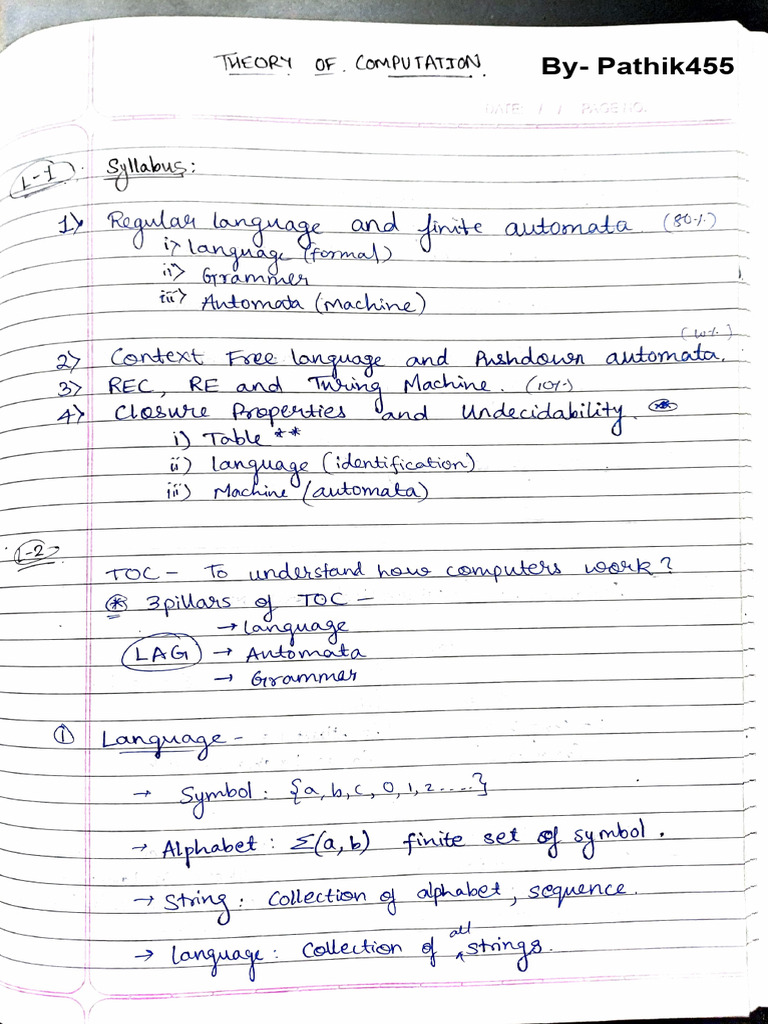 THEORY OF COMPUTATION. By- Pathik455
DATE: / / PAGE NO.
L-1 Syllabus:
1> Regular language and finite automata (80%)
i> language (formal)
ii> Grammer
iii> Automata (machine)
(10%)
2> Context Free language and Pushdown automata.
3> REC, RE and Turing Machine. (10%)
4> Closure Properties and Undecidability. *
i) Table **
ii) language (identification)
iii) Machine (automata)
L-2
TOC - To understand how computers work?
* 3 pillars of TOC -
→ language
LAG → Automata
→ Grammer
① Language -
→ Symbol : {a, b, c, 0, 1, 2 .....}
→ Alphabet : Σ(a, b) finite set of symbol.
→ String : Collection of alphabet, sequence.
→ language : Collection of all strings.